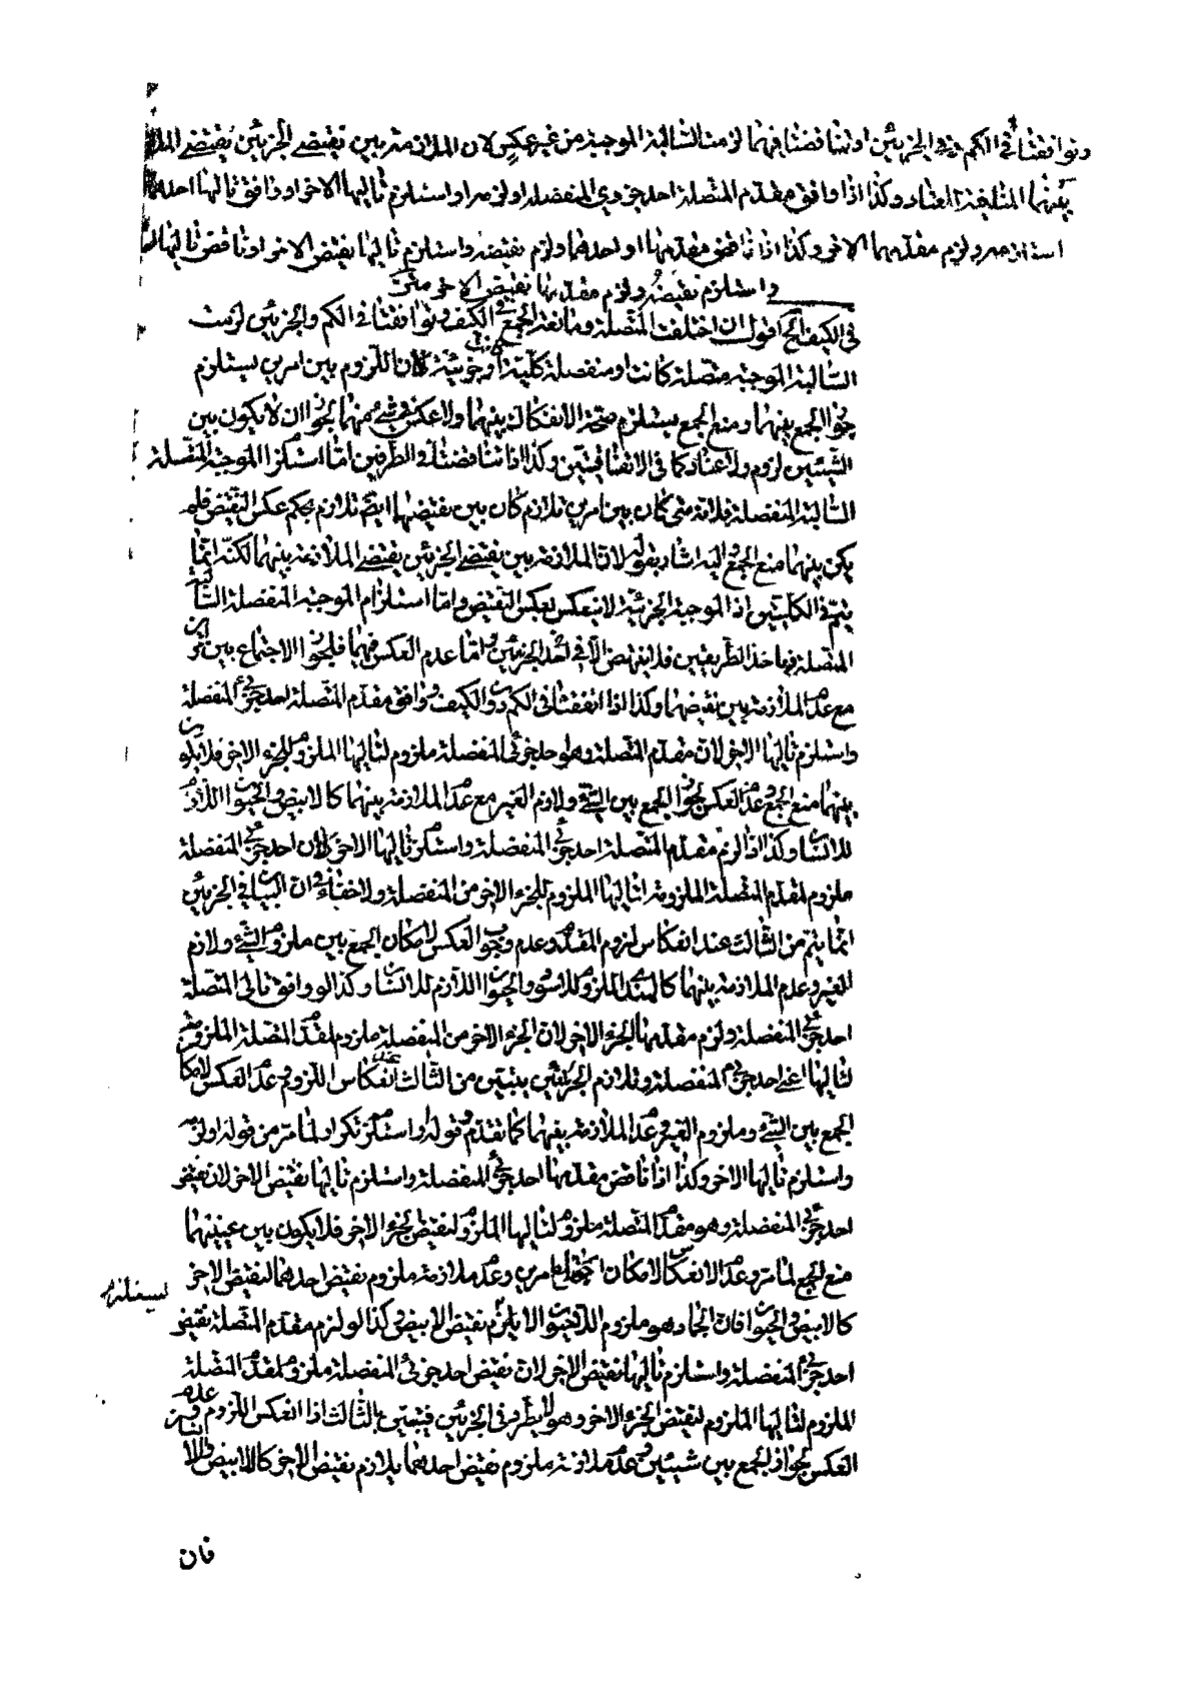 وتوافقتا في الكم وفي الجزئين او تناقضتا فيهما لزمت السالبة الموجبة من غير عكس لان الملازمة بين نقيضي الجزئين يقتضي الملا
بينهما المنافية للعناد وكذا اذا وافق مقدم المتصلة احد جزوي المنفصلة او لزمه او استلزم تاليها الاخر او وافق تاليها احدهما
استلزمه ولزم مقدمهما الاخر وكذا اذا ناقض مقدمها احدهما ولزم نقيضه واستلزم تاليها نقيض الاخر او ناقض تاليها
واستلزم نقيضه ولزم مقدمها نقيض الاخر متى
في الكيف الخ اقول ان اختلفت المتصلة ومانعة الجمع في الكيف وتوافقتا في الكم والجزئين لزمت
السالبة الموجبة متصلة كانت او منفصلة كلية او جزئية لان اللزوم بين امرين يستلزم
جواز الجمع بينهما ومنع الجمع يستلزم صحة الانفكاك بينهما ولا عكس في شئ منهما لجواز ان لا يكون بين
الشيئين لزوم ولا عناد كما في الاتفاقيتين وكذا اذا تناقضتا في الطرفين اما استلزام الموجبة المتصلة
السالبة المنفصلة فلانه متى كان بين امرين تلازم كان بين نقيضيهما ايضا تلازم بحكم عكس النقيض فلم
يكن بينهما منع الجمع واليه اشار بقوله لان الملازمة بين نقيضي الجزئين يقتضي الملازمة بينهما لكنه انما
يتم في الكليتين اذ الموجبة الجزئية لا ينعكس بعكس النقيض واما استلزام الموجبة المنفصلة السالبة
المتصلة فيما خذ الطريقين فلا ينهض الا في احد الجزئين واما عدم العكس فيهما فلجواز الاجتماع بين امرين
مع عدم الملازمة بين نقيضهما وكذا اذا اتفقتا في الكم دون الكيف ووافق مقدم المتصلة احد جزئي المنفصلة
واستلزم تاليها الاخر لان مقدم المتصلة وهو احد جزئي المنفصلة ملزوم لتاليها الملزوم للجزء الاخر فلا يكون
بينهما منع الجمع وعدم العكس لجواز الجمع بين الشئ ولازم الغير مع عدم الملازمة بينهما كالابيض والحيوان اللازم
للانسان وكذا اذا لزم مقدم المتصلة احد جزئي المنفصلة واستلزم تاليها الاخر لان احد جزئي المنفصلة
ملزوم لمقدم المتصلة الملزومة لتاليها الملزوم للجزء الاخر من المنفصلة ولا خفاء في ان البيان في الجزئين
انما يتم من الثالث عند انعكاس لزوم المقدم وعدم وجوب العكس لامكان الجمع بين ملزوم الشئ ولازم
الغير وعدم الملازمة بينهما الملزوم للاسود والحيوان اللازم للانسان وكذا لو وافق تالي المتصلة
احد جزئي المنفصلة ولزم مقدمها الجزء الاخر لان الجزء الاخر من المنفصلة ملزوم لمقدم المتصلة الملزوم
لتاليها اعني احد جزئي المنفصلة وتلازم الجزئيتين يتبين من الثالث عند انعكاس اللزوم وعدم العكس لامكان
الجمع بين الشئ وملزوم الغير وعدم الملازمة بينهما كما تقدم وقوله او استلزم تكرار لما مر من قوله او لزمه
واستلزم تاليها الاخر وكذا اذا ناقض مقدمها احد جزئي المنفصلة واستلزم تاليها نقيض الاخر لان نقيض
احد جزئي المنفصلة وهو مقدم المتصلة ملزوم لتاليها الملزوم لنقيض الجزء الاخر فلا يكون بين عينيهما
منع الجمع لما مر وعدم الانعكاس لامكان اجتماع امرين وعدم ملازمة ملزوم نقيض احدهما لنقيض الاخر
كالابيض والحيوان فان الجماد هو ملزوم اللاحيوان لا يلزم نقيض الابيض وكذا لو لزم مقدم المتصلة نقيض
احد جزئي المنفصلة واستلزم تاليها نقيض الاخر لان نقيض احد جزئي المنفصلة ملزوم لمقدم المتصلة
الملزوم لتاليها الملزوم لنقيض الجزء الاخر وهو لا يطرد في الجزئين فيتبين بالثالث اذا انعكس اللزوم وعدم
العكس لجواز الجمع بين شيئين وعدم ملازمة ملزوم نقيض احدهما بلازم نقيض الاخر كالابيض
فان